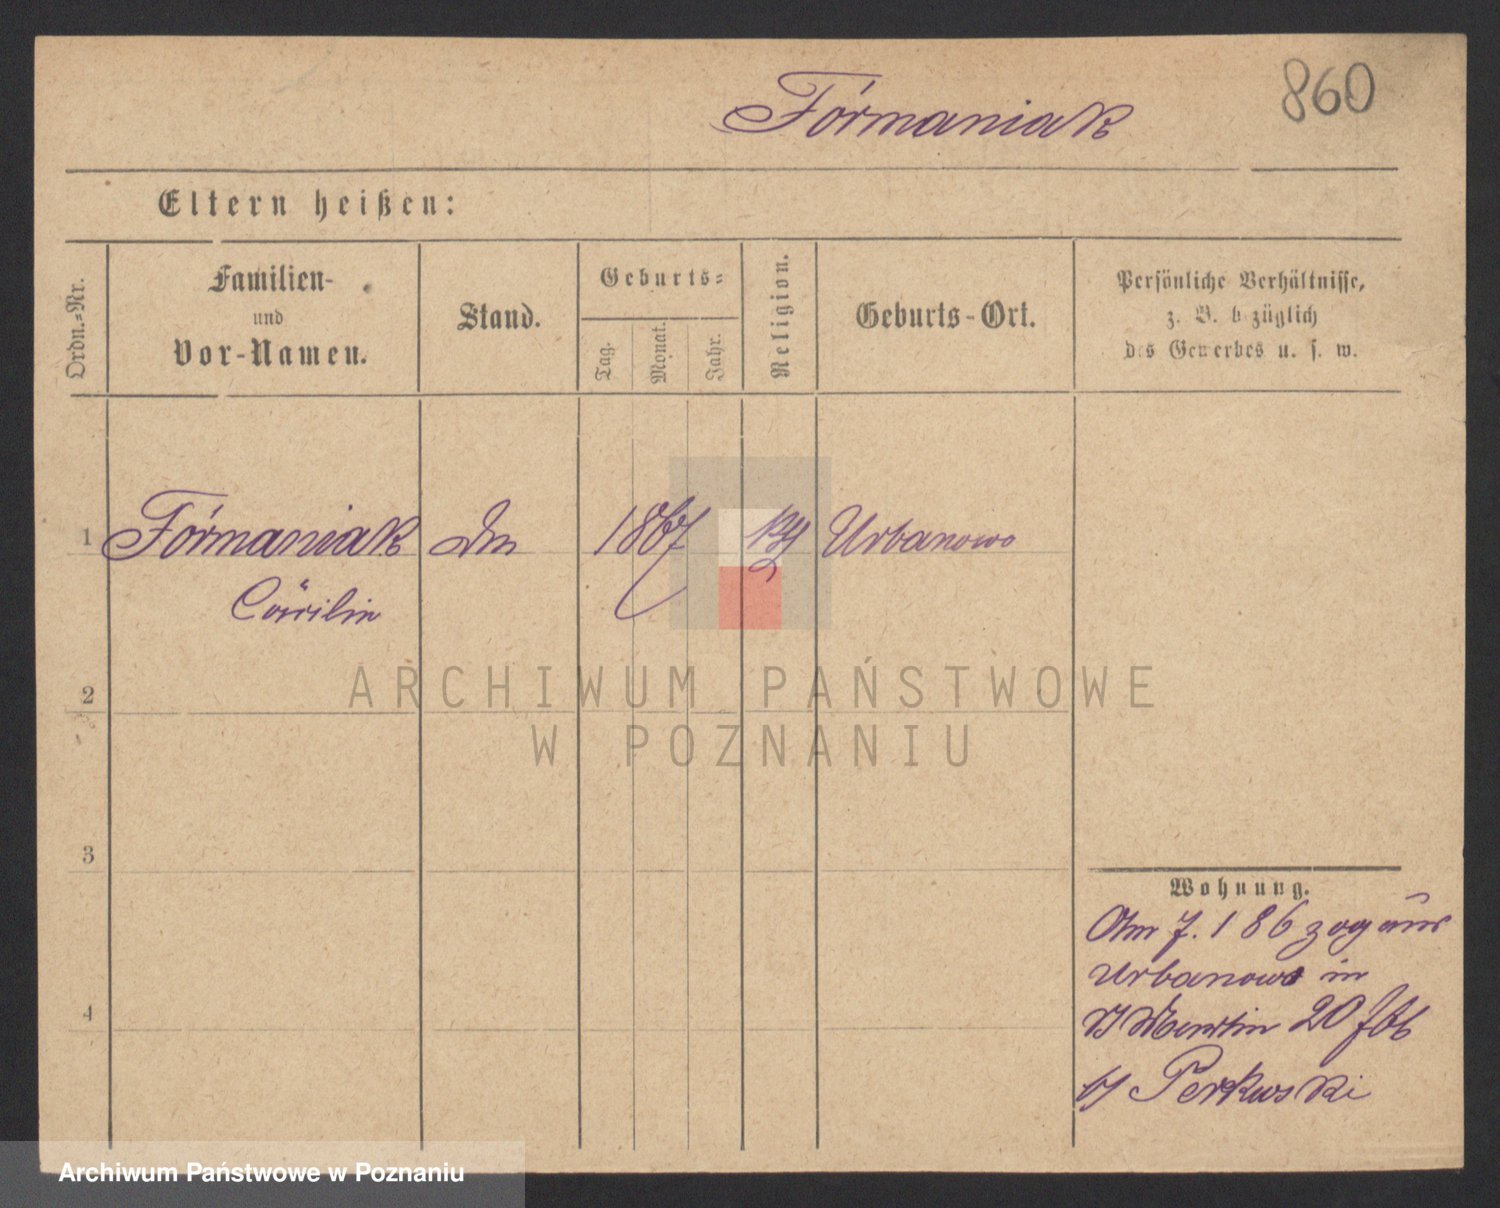 860
Fórmaniak
Eltern heißen:
Ordn.=Nr.
Familien-
und
Vor-Namen.
Stand.
Geburts=
Tag.
Monat.
Jahr.
Religion.
Geburts-Ort.
Persönliche Verhältnisse,
z. B. bezüglich
des Gewerbes u. s. w.
1 Fórmaniak 1867 Urbanowo
Cäcilie
2
3
4
Wohnung.
7. 1 86 zog aus
Urbanowo in
Martin 20
Perkowski
ARCHIWUM PAŃSTWOWE
W POZNANIU
Archiwum Państwowe w Poznaniu